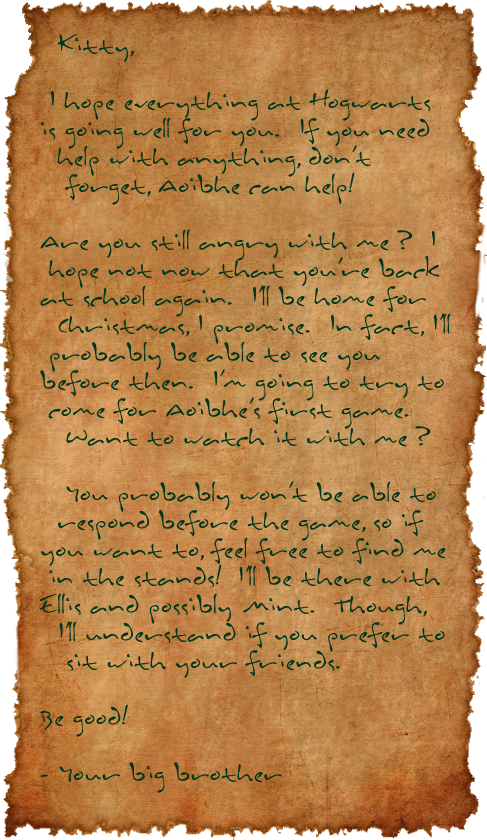 Kitty,
I hope everything at Hogwarts
is going well for you. If you need
help with anything, don't
forget, Aoibhe can help!
Are you still angry with me? I
hope not now that you're back
at school again. I'll be home for
Christmas, I promise. In fact, I'll
probably be able to see you
before then. I'm going to try to
come for Aoibhe's first game.
Want to watch it with me?
You probably won't be able to
respond before the game, so if
you want to, feel free to find me
in the stands! I'll be there with
Ellis and possibly Mint. Though,
I'll understand if you prefer to
sit with your friends.
Be good!
- Your big brother